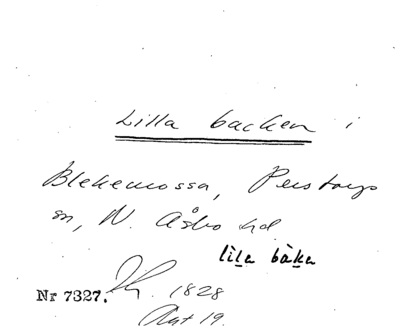 Lilla backen i
Blekemossa, Perstorps
sn, N. Åsbo hd
lìl̠a bàk̠a
Nr 7327. 1828
Akt 19.